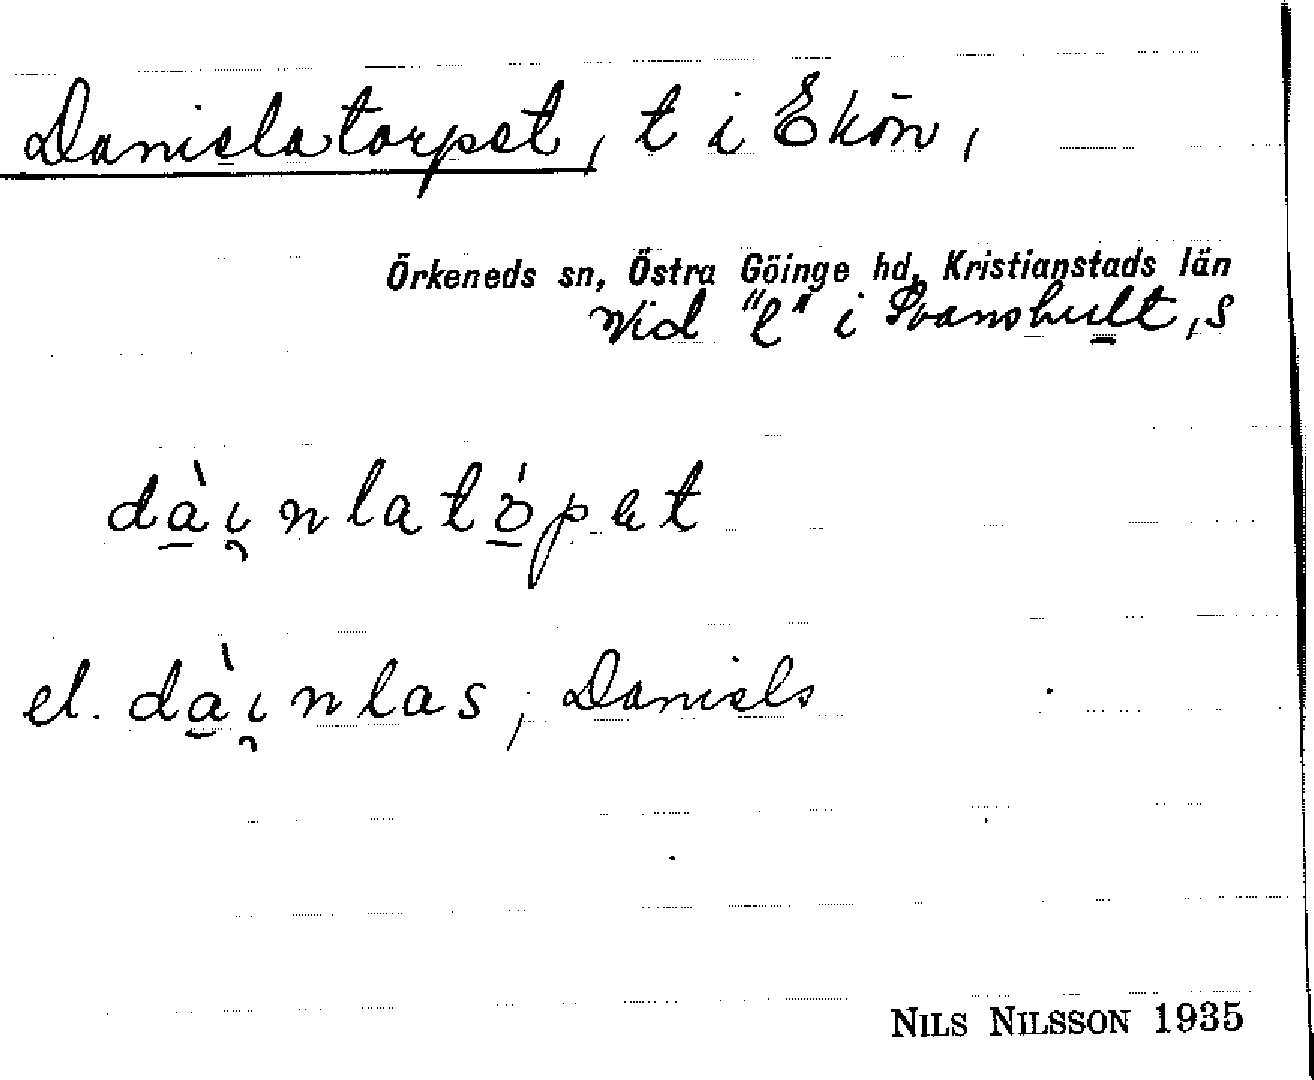 Danielatorpet, t i Ekön,
Örkeneds sn, Östra Göinge hd, Kristianstads län
Vid "l" i Svanshult, S
dàɩ̯nlatópet
el. dàɩ̯nlas, Daniels
NILS NILSSON 1935